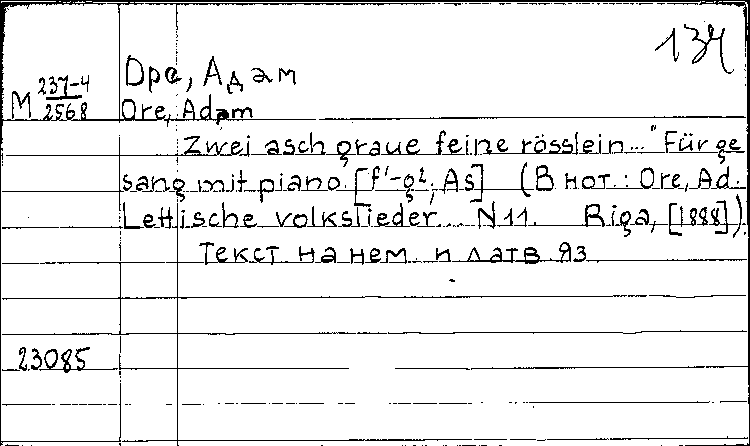 134
М 237-4
2568
Оре, Адам
Ore, Adam
Zwei asch graue feine rösslein..." Für ge
sang mit piano. [f'-g²; As] (В нот.: Ore, Ad.
Lettische volkslieder... N 11. Riga, [1888]).
Текст на нем. и латв. яз.
23085